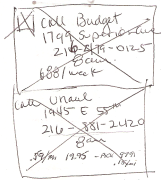 Call Budget
1799 Superior Ave
216-   -0125
8am
600/week
Call Uhaul
1945 E 55th
216-881-2420
8am
.59/mi 19.95